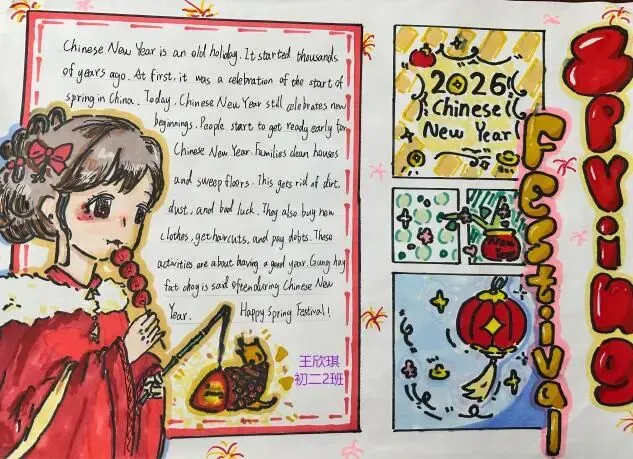 Chinese New Year is an old holiday. It started thousands
of years ago. At first, it was a celebration of the start of
spring in China. Today, Chinese New Year still celebrates new
beginnings. People start to get ready early for
Chinese New Year. Families clean houses
and sweep floors. This gets rid of dirt,
dust, and bad luck. They also buy new
clothes, get haircuts, and pay debts. These
activities are about having a good year. Gung hay
fat choy is said often during Chinese New
Year. Happy Spring Festival!
王欣琪
初二2班
2026
Chinese
New Year
New
Year
Spring
Festival